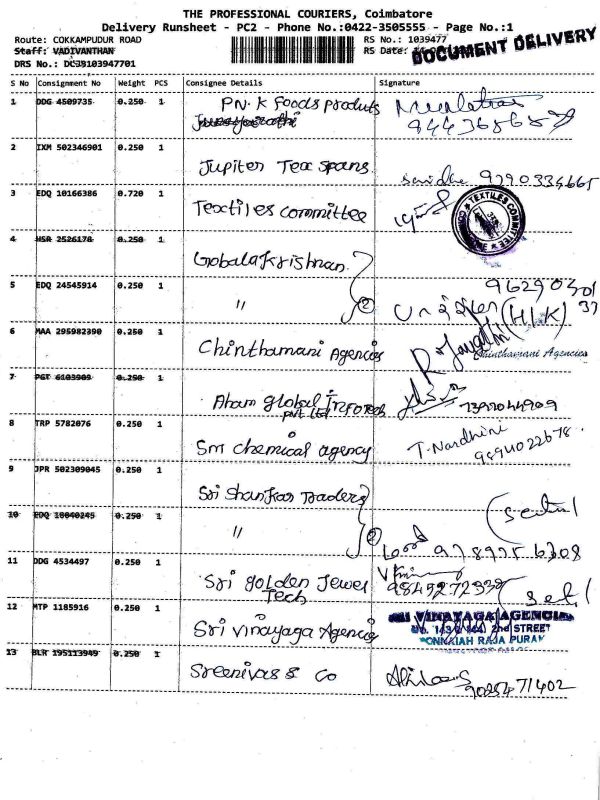 THE PROFESSIONAL COURIERS, Coimbatore
Delivery Runsheet - PC2 - Phone No.:0422-3505555 - Page No.:1
Route: COKKAMPUDUR ROAD RS No.: 1039477
Staff: VADIVANTHAN RS Date:
DOCUMENT DELIVERY
DRS No.: DCJB103947701
S No Consignment No Weight PCS Consignee Details Signature
1 DDG 4509735 0.250 1 P.N.K Foods Produts
2 IXM 502346901 0.250 1 Jupiter Tex spans
3 EDQ 10166386 0.720 1 Textiles committee
TEXTILES COMMITTEE
4 HSR 2526178 0.250 1 Gobalakrishnan
5 EDQ 24545914 0.250 1 " 2 (H/K)
6 MAA 295982390 0.250 1 Chinthamani Agencies
Chinthamani Agencies
7 PGT 6103909 0.250 1 Aham global Infotech
Pvt Ltd
8 TRP 5782076 0.250 1 Sm chemical agency T. Nandhini
9894022678.
9 JPR 502309045 0.250 1 Sri Shankar Traders
10 EDQ 10040245 0.250 1 " 2
11 DDG 4534497 0.250 1 Sri golden Jewel
Tech
12 MTP 1185916 0.250 1 Sri Vinayaga Agencies
SRI VINAYAGA AGENCIES
2nd STREET
PONNAIAH RAJA PURAM
13 BLR 195113949 0.250 1 Sreenivas & Co
9025471402